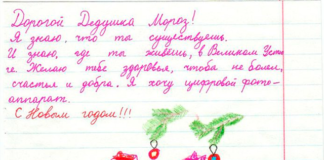 Дорогой Дедушка Мороз!
Я знаю, что ты существуешь.
И знаю, где ты живешь, в Великом Устю
ге. Желаю тебе здоровья, чтобы не болел,
счастья и добра. Я хочу цифровой фото-
аппарат.
С Новым годом!!!